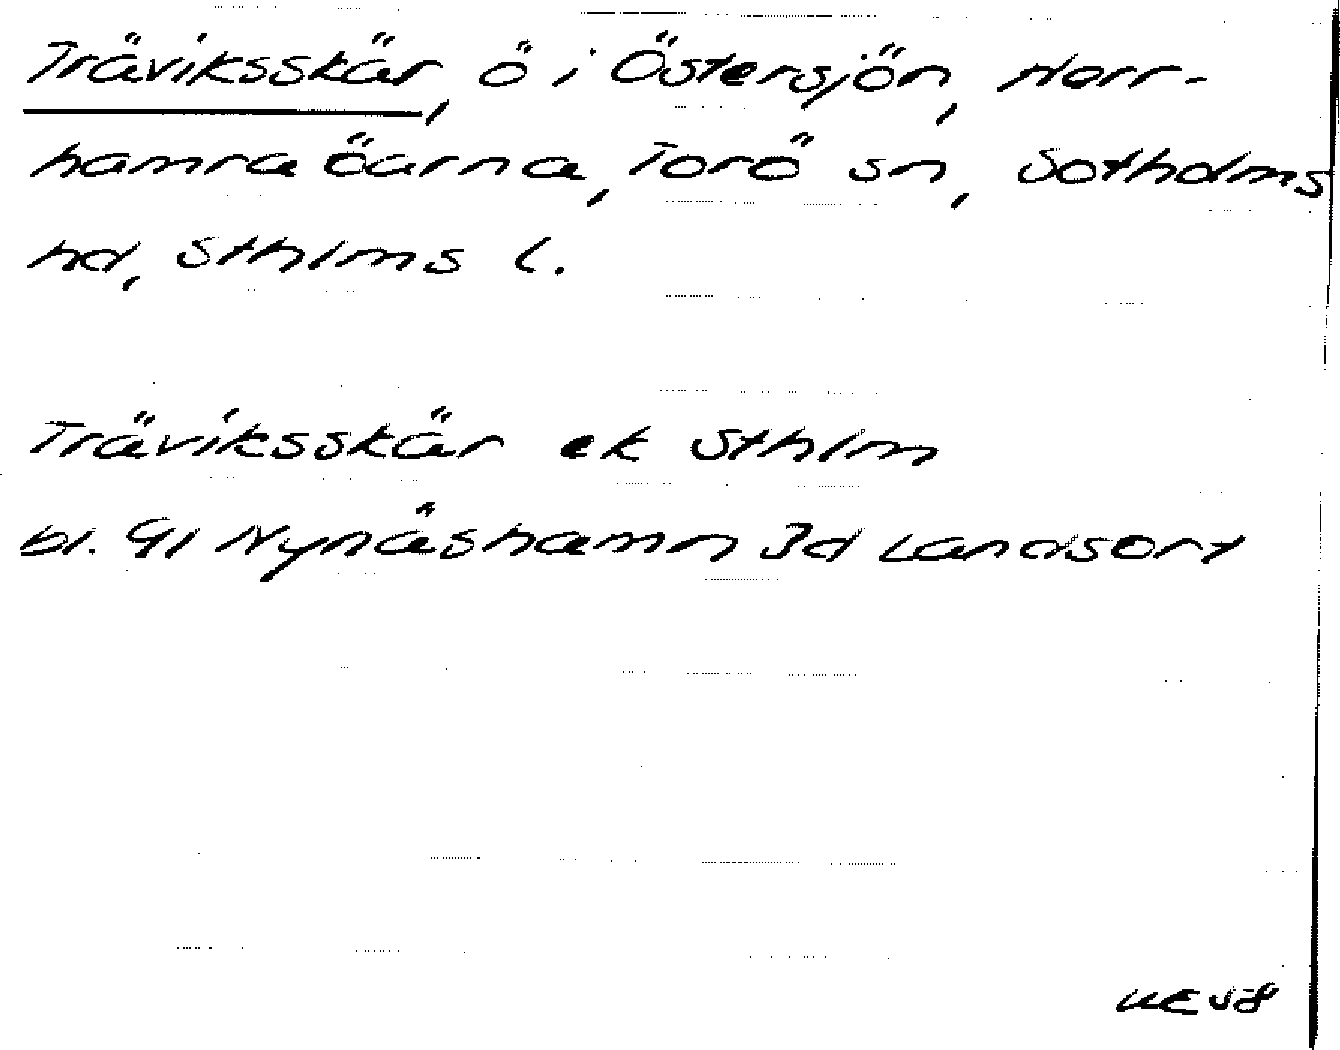 Träviksskär, ö i Östersjön, Herr-
hamra öarna, Torö sn, Sotholms
hd, Sthlms l.
Träviksskär ek Sthlm
bl. 91 Nynäshamn 3d Landsort